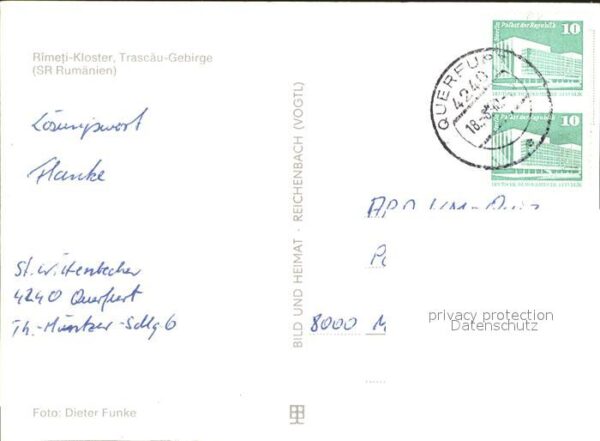 Rîmeţi-Kloster, Trascău-Gebirge
(SR Rumänien)
Lösungswort
Flanke
St. Wittenbecher
4240 Querfurt
Th.-Müntzer-Sdlg 6
Foto: Dieter Funke
BILD UND HEIMAT · REICHENBACH (VOGTL)
Palast der Republik 10
DEUTSCHE DEMOKRATISCHE REPUBLIK
Palast der Republik 10
DEUTSCHE DEMOKRATISCHE REPUBLIK
QUERFURT
4240
8000 M
privacy protection
Datenschutz